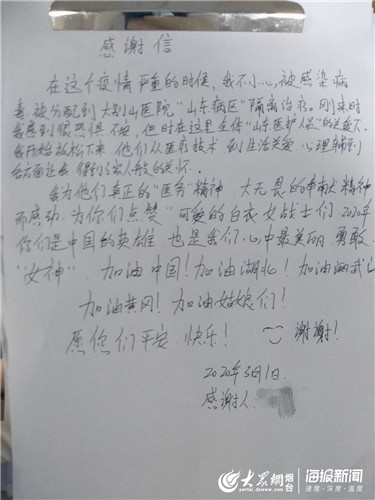 感谢信
在这个疫情严重的时候，我不小心，被感染病
毒，被分配到大别山医院“山东病区”隔离治疗。刚来时
我感到很恐惧不安，但时在这里全体“山东医护人员”的关爱下
我开始放松下来 他们从医疗技术 到生活关爱 心理辅导
给方面让我 得到了家人般的关怀。
我为他们真正的“医务”精神 大无畏的 精神
而感动 为你们点赞 “可爱的白衣女战士们 2020年
你们是中国的英雄 也是我们心中最美丽 勇敢
“女神” 加油中国！加油湖北！加油武
加油黄冈！加油姑娘们！
愿你们平安 快乐！ 谢谢！
2020年3月1日
感谢人
大众网 烟台 海报新闻
速度·深度·温度